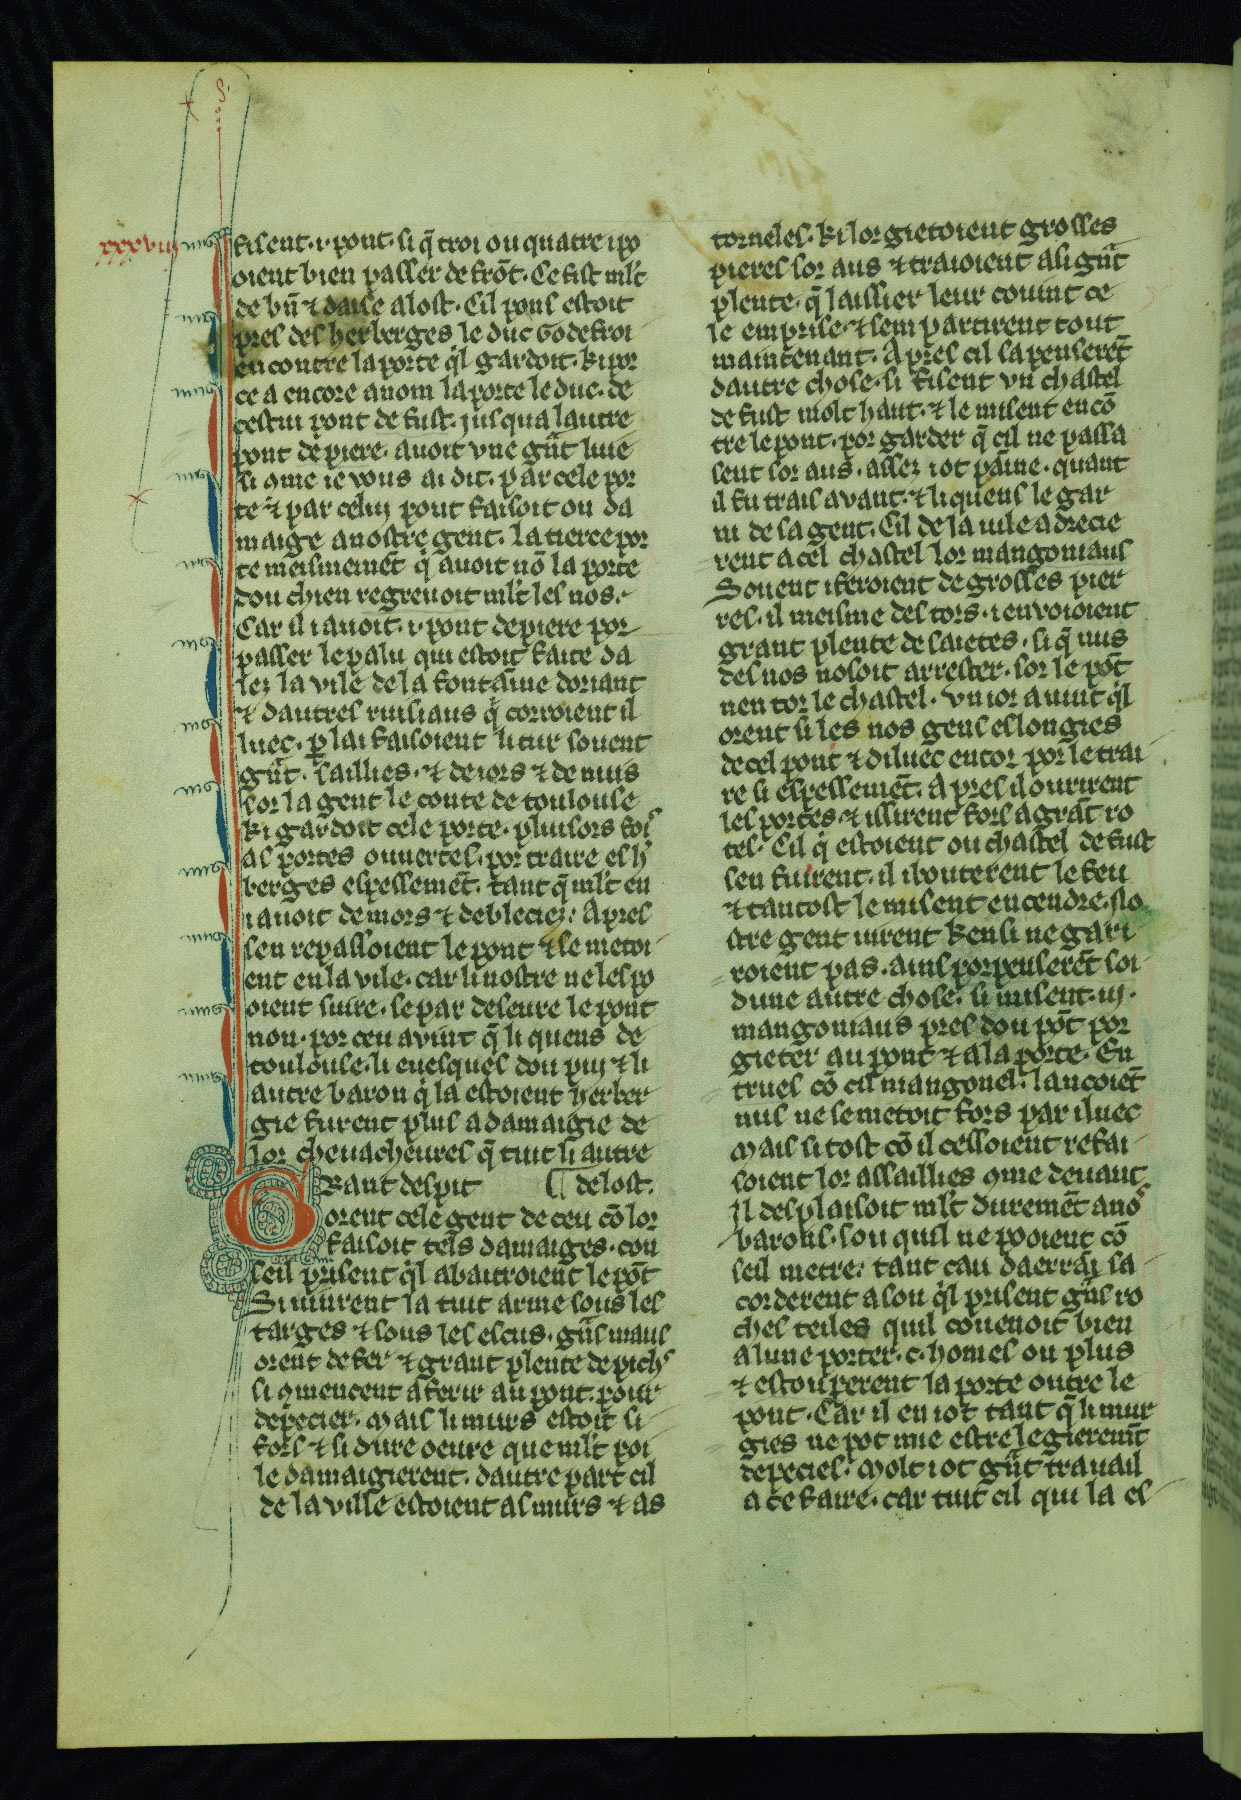 xxxviij
fisent .i. pont. si q̃ troi ou quatre i po
oient bien passer de frõt. Ce fist ml't
de bñ ⁊ daise a lost. Cil pons estoit
pres des herberges le duc Godefroi
encontre la porte q̾l gardoit. ki por
ce a encore a nom la porte le duc. de
cestui pont de fust. jusqua lautre
pont de piere. auoit vne gñt liue
si ꝯme ie vous ai dit. par cele por
te ⁊ par celui pont faisoit on da
maige a nostre gent. la tierce por
te meismemẽt q̾ auoit nõ la porte
dou chien regreuoit ml't les nos.
Car il i auoit .i. pont de piere por
passer le palu qui estoit faite da
lez la vile de la fontainne doriant
⁊ dautres ruisiaus q̾ corroient il
luec. p̱ la i faisoient li tur souent
gñt. saillies. ⁊ de iors ⁊ de nuis
sor la gent le conte de toulouse
ki gardoit cele porte. pluisors foi
as portes ouuertes. por traire es h̾
berges espessemẽt. tant q̃ ml't en
i auoit de mors ⁊ de bleciez. Apres
sen repassoient le pont ⁊ se metoi
ent en la vile. car li nostre ne les po
oient siure. se par deseure le pont
non. por ceu auint q̃ li quens de
toulouse. li euesques dou puj ⁊ li
autre baron q̾ la estoient herber
gie furent plus adamaigie de
lor cheuacheures q̃ tuit li autre
Grant despit ¶ de lost.
orent cele gent de ceu cõ lor
faisoit tels damaiges. con
seil prisent q̾l abatroient le põt
Si uinrent la tuit arme sous les
targes ⁊ sous les escus. gñs maus
orent de fer ⁊ grant plente de pichs
si ꝯmencent a ferir au pont. pour
depecier. Mais li murs estoit si
fors ⁊ si dure oeure que ml't poi
le damaigierent. dautre part cil
de la ville estoient as murs ⁊ as
torneles. ki lor gietoient grosses
pieres sor aus ⁊ traioient a si gñt
plente. q̃ laissier leur couint ce
le emprise. ⁊ sem partirent tout
maintenant. Apres cil sapenserẽt
dautre chose. si fisent vn chastel
de fust molt haut. ⁊ le misent en cõ
tre le pont. por garder q̃ cil ne passa
sent sor aus. assez i ot paine. quant
il fu trais auant. ⁊ li quens le gar
ni de sa gent. Cil de la uile adrecie
rent a cel chastel lor mangoniaus
Souent i feroient de grosses pier
res. il meisme des tors. i enuoioient
grant plente de saietes. si q̃ nus
des nos nosoit arrester. sor le põt
nen tor le chastel. vn ior auint q̾l
orent si les nos gens eslongies
de cel pont ⁊ diluec entor por le trai
re si espessemẽt. Apres il ourirent
les portes ⁊ issirent fors a grãt ro
tes. Cil q̾ estoient ou chastel de fust
sen fuirent. il i bouterent le feu
⁊ tantost le misent en cendre. No
stre gent uirent kensi ne gari
roient pas. ains porpenserẽt soi
dune autre chose. si misent .iij.
mangoniaus pres dou põt por
gieter au pont ⁊ a la porte. En
trues cõ cil mangonel. lancoiẽt
nus ne se metoit fors par iluec
Mais si tost cõ il cessoient refai
soient lor assaillies ꝯme deuant.
Il desplaisoit ml't duremẽt a nos
barons. sou quil ne pooient cõ
seil metre. tant cau daerraj sa
corderent a sou q̾l prisent gñs ro
ches teiles quil couenoit bien
a lune porter .c. homes ou plus
⁊ estouperent la porte outre le
pont. Car il en i ot tant q̃ li mur
gies ne pot mie estre legieremt̃
depecies. Molt i ot gñt trauail
a ce faire. car tuit cil qui la es